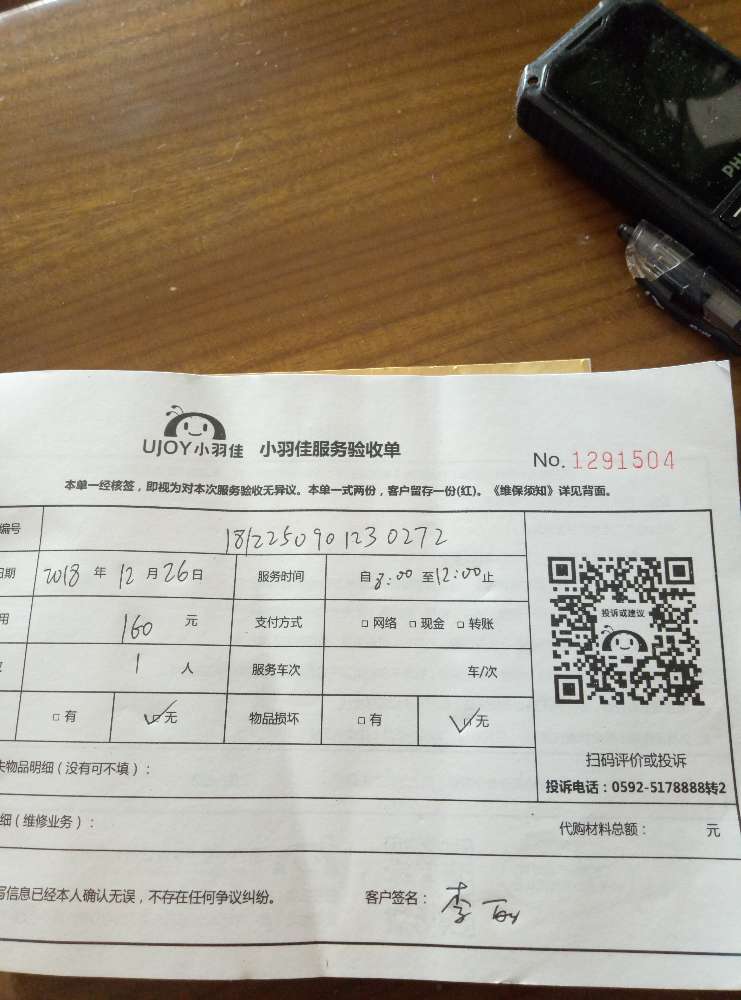 PHI
UJOY小羽佳 小羽佳服务验收单
No. 1291504
本单一经核签，即视为对本次服务验收无异议。本单一式两份，客户留存一份(红)。《维保须知》详见背面。
编号 1812250901230272
日期 2018 年 12 月 26 日 服务时间 自 8:00 至 12:00 止
用 160 元 支付方式 □ 网络 □ 现金 □ 转账
1 人 服务车次 车/次
□ 有 ☑ 无 物品损坏 □ 有 ☑ 无
投诉或建议
扫码评价或投诉
投诉电话：0592-5178888转2
失物品明细（没有可不填）：
细（维修业务）： 代购材料总额： 元
写信息已经本人确认无误，不存在任何争议纠纷。 客户签名： 李